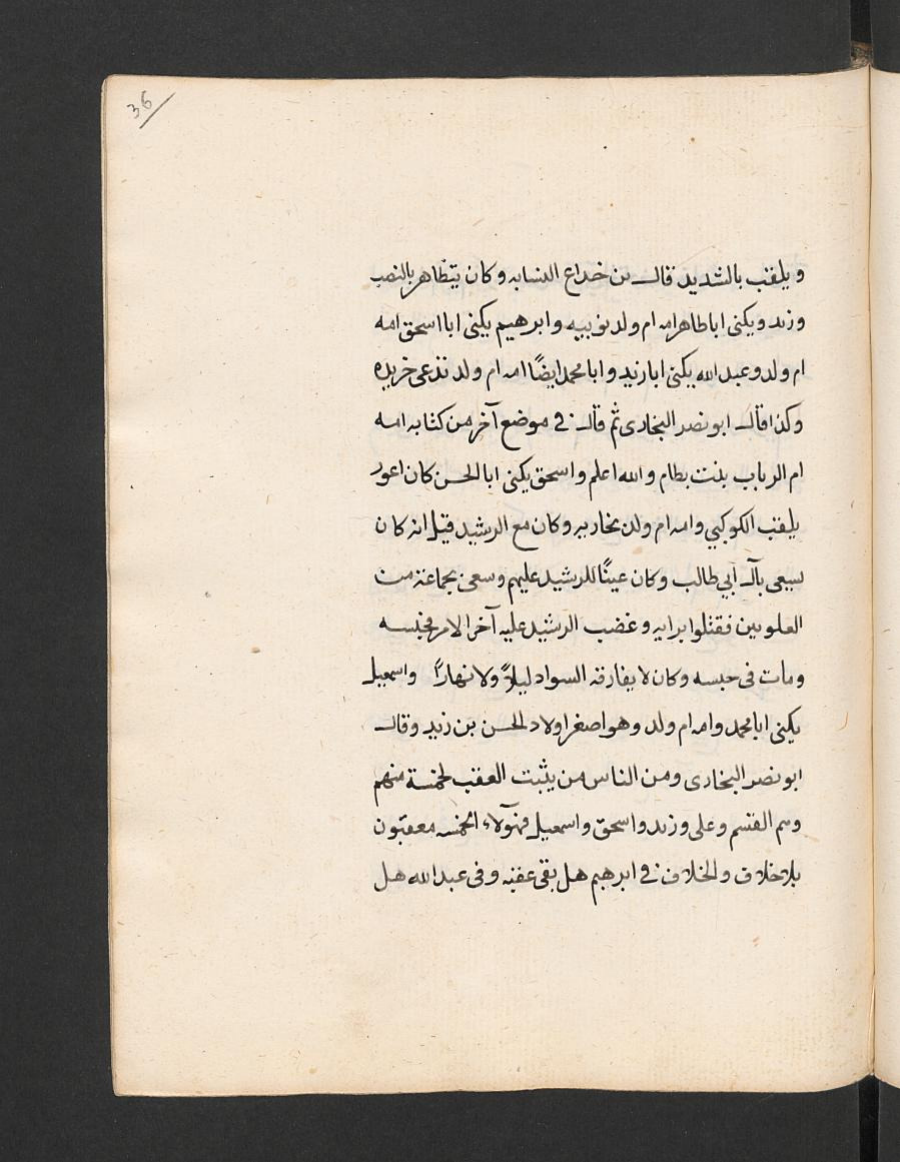 36
ويلقب بالشديد قال بن خداع النسابه وكان يتظاهر بالنصب
وزيد ويكنى ابا طاهر امه ام ولد نوبيه وابرهيم يكنى ابا اسحق امه
ام ولد وعبد الله يكنى ابا زيد وابا محمد ايضًا امه ام ولد تدعى خريده
وكذا قال ابو نصر البخارى ثم قال فى موضع آخر من كتابه امه
ام الرباب بنت بطام والله اعلم واسحق يكنى ابا الحسن كان اعور
يلقب الكوكبي وامه ام ولد بخاريه وكان مع الرشيد قيل انه كان
يسعى بآل أبي طالب وكان عينًا للرشيد عليهم وسعى بجماعة من
العلويين فقتلوا برايه وغضب الرشيد عليه آخر الامر فحبسه
ومات فى حبسه وكان لا يفارقه السواد ليلاً ولا نهارًا واسمعيل
يكنى ابا محمد وامه ام ولد وهو اصغر اولاد الحسن بن زيد وقال
ابو نصر البخارى ومن الناس من يثبت العقب لخمسة منهم
وهم القسم وعلى وزيد واسحق واسمعيل فهؤلآء الخمسه معقبون
بلا خلاف والخلاف فى ابرهيم هل بقى عقبه وفى عبد الله هل